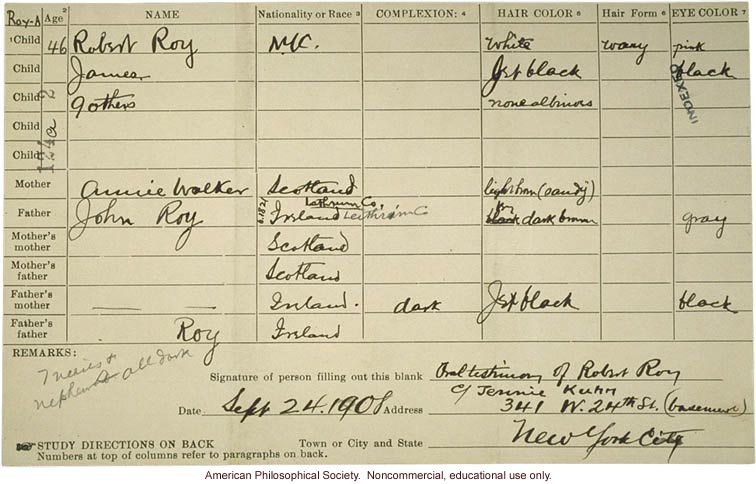 Roy-A Age 2 NAME Nationality or Race 3 COMPLEXION: 4 HAIR COLOR 5 Hair Form 6 EYE COLOR 7
1 Child 46 Robert Roy N.Y.C. White wavy pink
Child James Jet black black
Child 9 others none albinos
Child
Child
INDEXED
Mother Annie Walker Scotland light brown (sandy)
Father John Roy Ireland Leithrim Co dark brown gray
Mother's mother Scotland
Mother's father Scotland
Father's mother — — Ireland. dark Jet black black
Father's father Roy Ireland
REMARKS:
7 nieces &
nephews all dark
Signature of person filling out this blank Oral testimony of Robert Roy
c/ Jennie Kuhn
Date Sept 24. 1908 Address 341 W. 24th St. (basement)
STUDY DIRECTIONS ON BACK Town or City and State New York City
Numbers at top of columns refer to paragraphs on back.
American Philosophical Society. Noncommercial, educational use only.